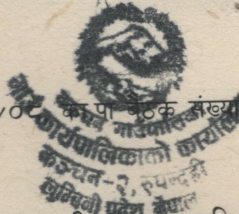 का.पा बैठक संख्या
कञ्चन गाउँपालिका
गाउँ कार्यपालिकाको कार्यालय
कञ्चन-२, रुपन्देही
लुम्बिनी प्रदेश नेपाल